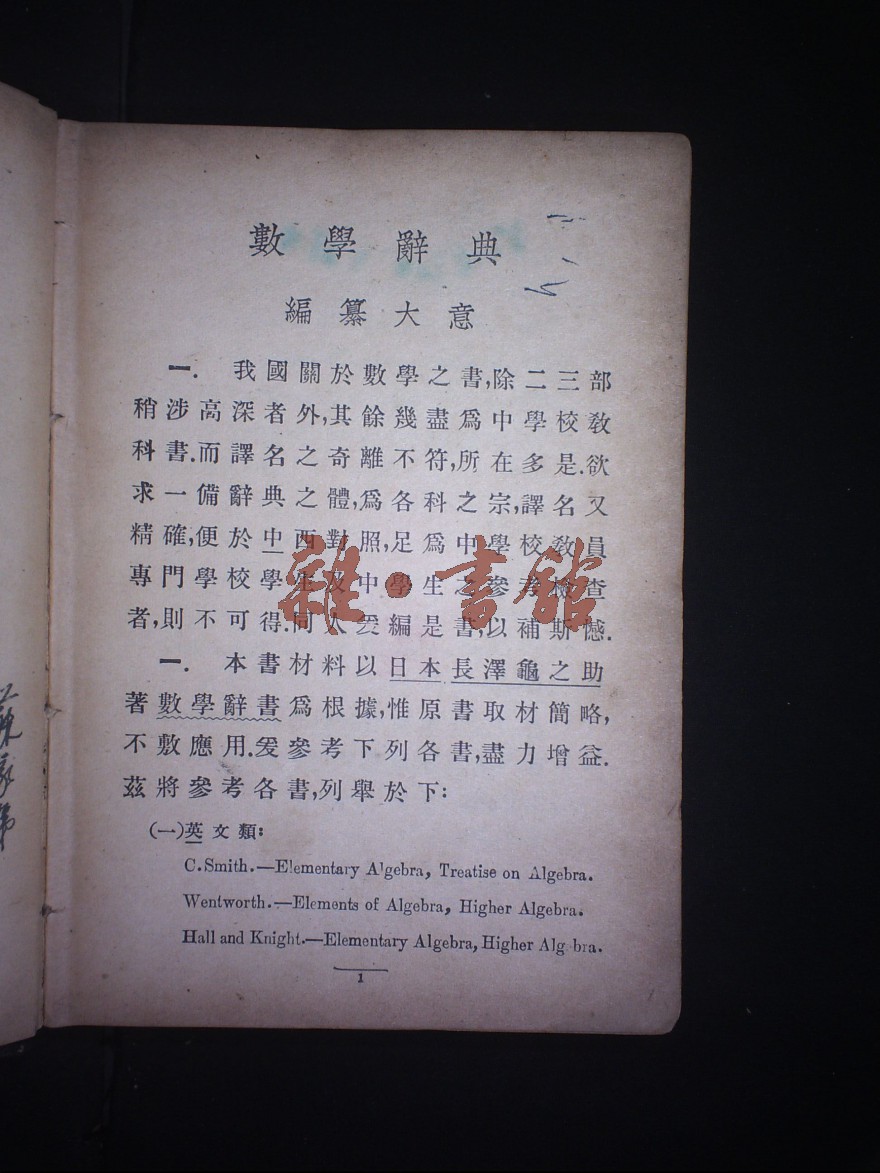 數學辭典
編纂大意
一. 我國關於數學之書,除二三部
稍涉高深者外,其餘幾盡爲中學校敎
科書.而譯名之奇離不符,所在多是.欲
求一備辭典之體,爲各科之宗,譯名又
精確,便於中西對照,足爲中學校敎員
專門學校學生及中學生之參考檢查
者,則不可得.同人爰編是書,以補斯憾.
一. 本書材料以日本長澤龜之助
著數學辭書爲根據,惟原書取材簡略,
不敷應用.爰參考下列各書,盡力增益.
茲將參考各書,列舉於下:
(一)英文類:
C. Smith.—Elementary Algebra, Treatise on Algebra.
Wentworth.—Elements of Algebra, Higher Algebra.
Hall and Knight.—Elementary Algebra, Higher Algebra.
1
雜·書館